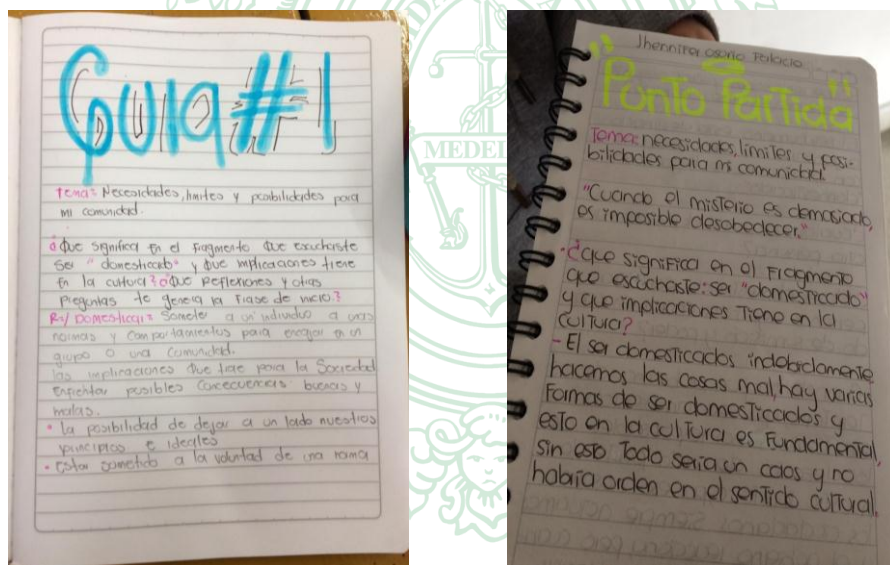 Guia #1
Tema: Necesidades, limites y posibilidades para
mi comunidad.
¿Que significa en el fragmento que escuchaste
ser "domesticado" y que implicaciones tiene
en la cultura? ¿Que reflexiones y otras
preguntas te genera la frase de inicio?
R:/ Domesticar: Someter a un individuo a unas
normas y comportamientos para encajar en un
grupo o una comunidad.
las implicaciones que trae para la Sociedad
enfrentar posibles consecuencias buenas y
malas.
• la posibilidad de dejar a un lado nuestros
principios e ideales
• Estar sometido a la voluntad de una norma
MEDE
Jhennifer osorio Palacio
"Punto Partida"
Tema: necesidades, limites y posi-
bilidades para mi comunidad.
"Cuando el misterio es demasiado,
es imposible desobedecer."
• ¿que significa en el Fragmento
que escuchaste: ser "domesticado"
y que implicaciones Tiene en la
cultura?
- El ser domesticados indebidamente
hacemos las cosas mal, hay varias
Formas de ser domesticados y
esto en la cultura es Fundamental,
sin esto Todo seria un caos y no
habria orden en el sentido cultural.